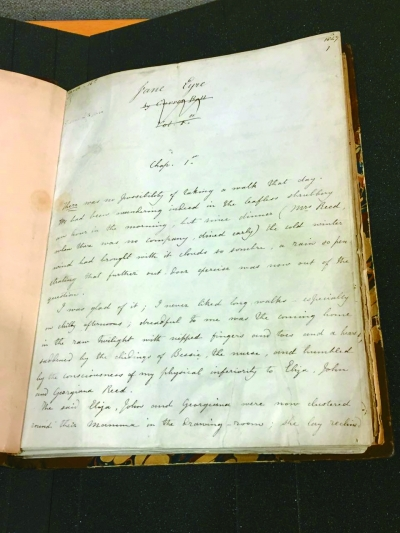 1847
1
Jane Eyre
by Currer Bell
Vol. 1st
Chap. 1st
There was no possibility of taking a walk that day.
We had been wandering indeed in the leafless shrubbery
an hour in the morning, but since dinner (Mrs Reed,
when there was no company, dined early) the cold winter
wind had brought with it clouds so sombre, a rain so pene
trating that further out-door exercise was now out of the
question.
I was glad of it; I never liked long walks - especially
on chilly afternoons; dreadful to me was the coming home
in the raw twilight with nipped fingers and toes and a heart
saddened by the chidings of Bessie, the nurse, and humbled
by the consciousness of my physical inferiority to Eliza, John
and Georgiana Reed.
The said Eliza, John and Georgiana were now clustered
round their Mamma in the drawing-room; she lay reclin